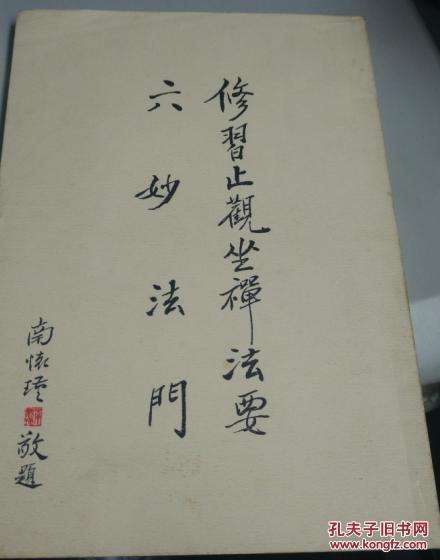 修習止觀坐禪法要
六妙法門
南懷瑾敬題
孔夫子旧书网